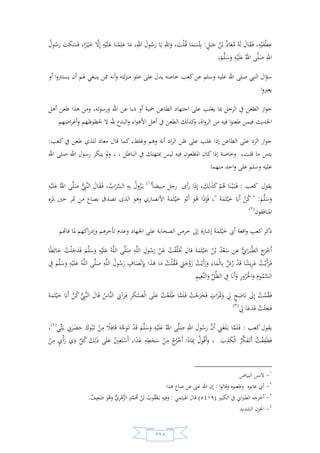 عِطْفِهِ، فَقَالَ لَهُ مُعَاذُ بْنُ جَبَلٍ: بِئْسَمَا قُلْتَ، وَاللهِ يَا رَسُولَ اللهِ، مَا عَلِمْنَا عَلَيْهِ إِلَّا خَيْرًا، فَسَكَتَ رَسُولُ
اللهِ صَلَّى اللهُ عَلَيْهِ وَسَلَّمَ،
سؤال النبي صلى الله عليه وسلم عن كعب خاصه يدل على علو منزلته وأنه ممن ينبغي لهم أن يستنفروا أو
يعبروا
جواز الطعن في الرجل بما يغلب على اجتهاد الطاعن حمية أو ذبا عن الله ورسوله، ومن هذا طعن أهل
الحديث فيمن طعنوا فيه من الرواة، وكذلك الطعن في أهل الأهواء والبدع لله لا لحظوظهم وأغراضهم
جواز الرد على الطاعن إذا غلب على ظن الراد أنه وهم وغلط، كما قال معاذ للذي طعن في كعب:
بئس ما قلت، وخاصة إذا كان المطعون فيه ليس بمتهتك في الباطل ، ، ولم ينكر رسول الله صلى الله
عليه وسلم على واحد منهما
يقول كعب : فَبَيْنَا هُمْ كَذَلِكَ، إِذَا رأى رجل مبيضاً(١) يَزُولُ بِهِ السَّرَابُ، فَقَالَ النَّبِيُّ صَلَّى اللهُ عَلَيْهِ
وَسَلَّمَ: " كُنْ أَبَا خَيْثَمَةَ "، فَإِذَا هُوَ أَبُو خَيْثَمَةَ الأنصاري وهو الذى تصدق بصاع من تمر حين لمزه
المنافقون(٢)
ذكر كعب واقعة أبي خَيْثَمَةَ إشارة إلى حرص الصحابة على الجهاد وعدم تأخرهم وإدراكهم لما فاتهم
أخرج الطَّبَرَانِيُّ عَنْ سَعْدِ بْنِ خَيْثَمَةَ قَالَ تَخَلَّفْتُ عَنْ رَسُولِ اللَّهِ صَلَّى اللَّهُ عَلَيْهِ وَسَلَّمَ فَدَخَلْتُ حَائِطًا
فَرَأَيْتُ عَرِيشًا قَدْ رُشَّ بِالْمَاءِ وَرَأَيْتُ زَوْجَتِي فَقُلْتُ مَا هَذَا بِإِنْصَافٍ رَسُولُ اللَّهِ صَلَّى اللَّهُ عَلَيْهِ وَسَلَّمَ فِي
السَّمُومِ وَالْحَرُورِ وَأَنَا فِي الظِّلِّ وَالنَّعِيمِ
فَقُمْتُ إِلَى نَاضِحٍ لِي وَتَمَرَاتٍ فَخَرَجْتُ فَلَمَّا طَلَعْتُ عَلَى الْعَسْكَرِ فَرَآنِي النَّاسُ قَالَ النَّبِيُّ كُنْ أَبَا خَيْثَمَةَ
فَجِئْتُ فَدَعَا لِي (٣)
يقول كعب : فَلَمَّا بَلَغَنِي أَنَّ رَسُولَ اللهِ صَلَّى اللهُ عَلَيْهِ وَسَلَّمَ قَدْ تَوَجَّهَ قَافِلًا مِنْ تَبُوكَ حَضَرَنِي بَثِّي(٤)،
فَطَفِقْتُ أَتَذَكَّرُ الْكَذِبَ ، وَأَقُولُ : بِمَاذَا أَخْرُجُ مِنْ سَخَطِهِ غَدًا، أَسْتَعِينُ عَلَى ذَلِكَ كُلَّ ذِي رَأْيٍ مِنْ
١- لابس البياض
٢- أي عابوه وطعنوه وقالوا : إن الله غنى عن صاع هذا
٣- أخرجه الطبراني في الكبير (٥٤١٩) قال الهيثمي : وَفِيهِ يَعْقُوبُ بْنُ مُحَمَّدٍ الزُّهْرِيُّ وَهُوَ ضَعِيفٌ.
٤- الحزن الشديد
٢٢٥